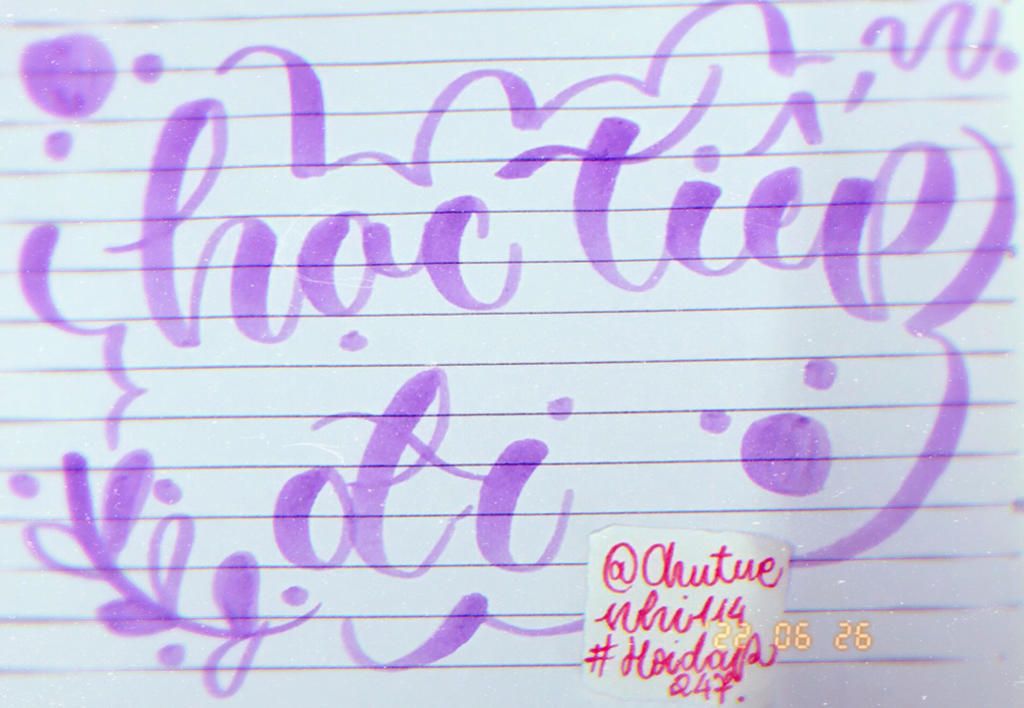 học tiếp
đi
@Chutue
nhi114
#Hoidap
247.
22 06 26